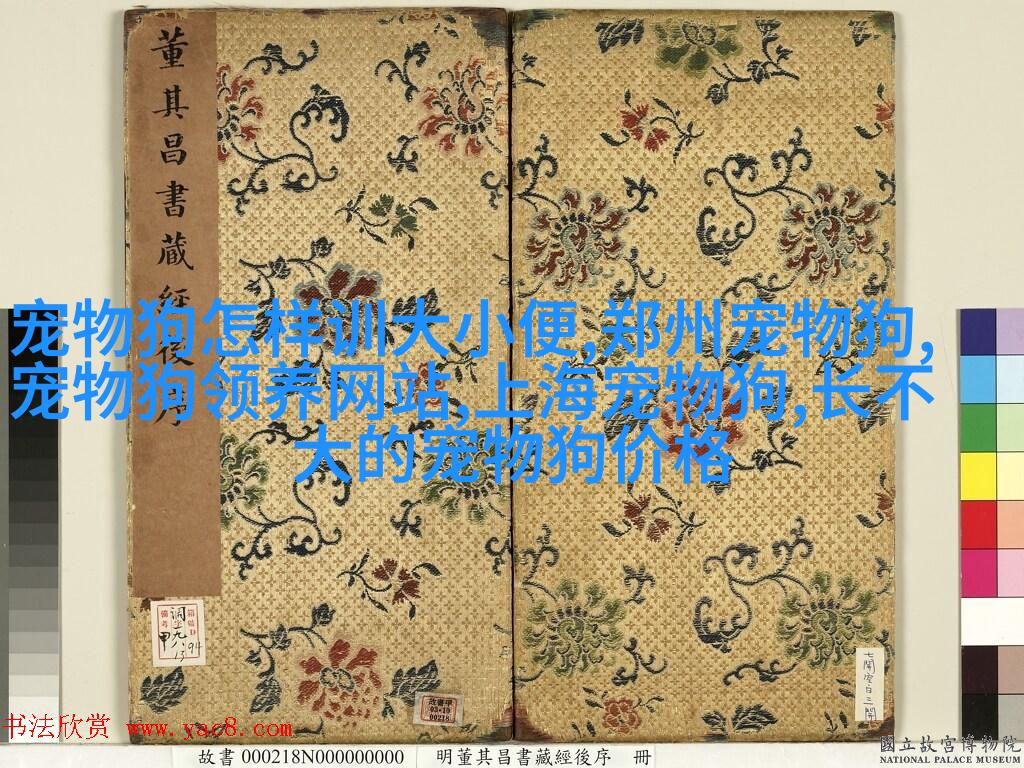 董其昌書藏經後序
宠物狗怎样训大小便,郑州宠物狗,
宠物狗领养网站,上海宠物狗,长不
大的宠物狗价格
故書甲
03·10
00218
七開空白三開
书法欣赏 www.yac8.com
故書 000218N000000000
明董其昌書藏經後序 冊
國立故宮博物院
NATIONAL PALACE MUSEUM